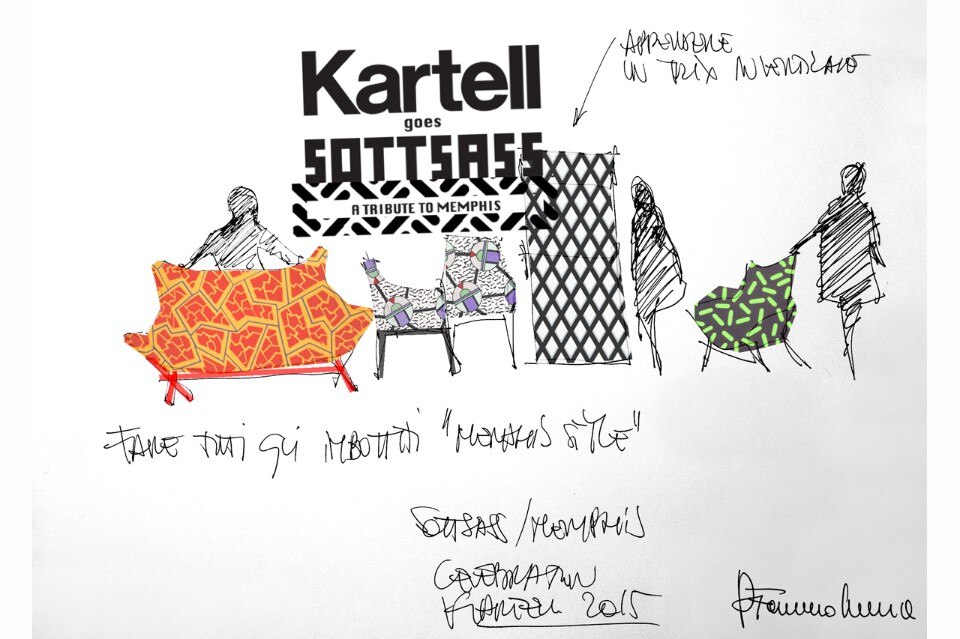 APPENDERE
UN TRIX INGRANDITO
Kartell
goes
SOTTSASS
A TRIBUTE TO MEMPHIS
FARE TUTTI GLI IMBOTTITI "MEMPHIS STYLE"
SOTTSASS/MEMPHIS
CELEBRATION
KARTELL 2015